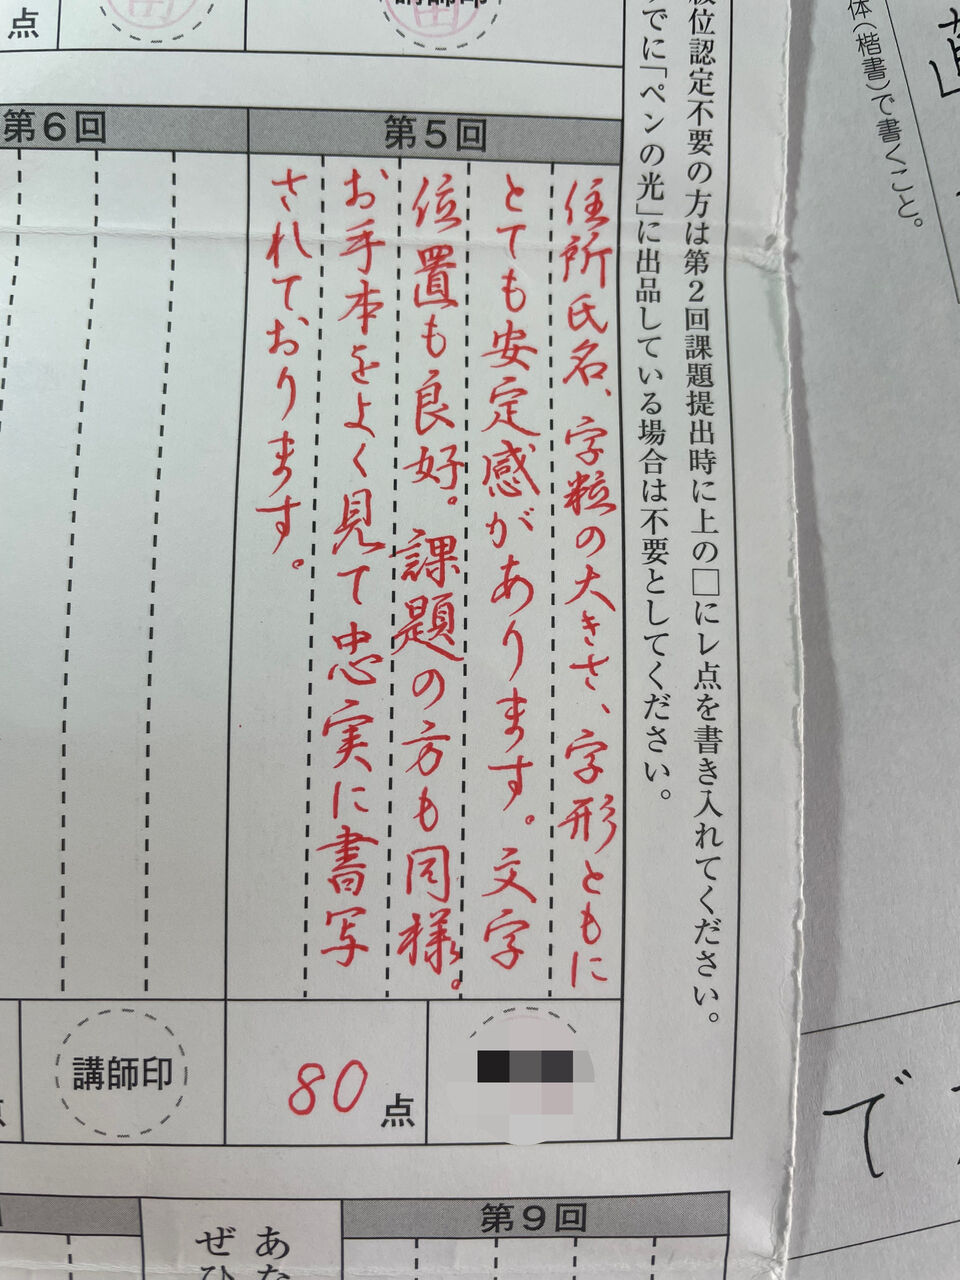 体(楷書)で書くこと。
級位認定不要の方は第2回課題提出時に上の□にレ点を書き入れてください。
でに「ペンの光」に出品している場合は不要としてください。
点
講師印
第5回
住所氏名、字粒の大きさ、字形ともに
とても安定感があります。文字
位置も良好。課題の方も同様。
お手本をよく見て忠実に書写
されております。
80点
第6回
講師印
点
第9回
あな
ぜひ
で